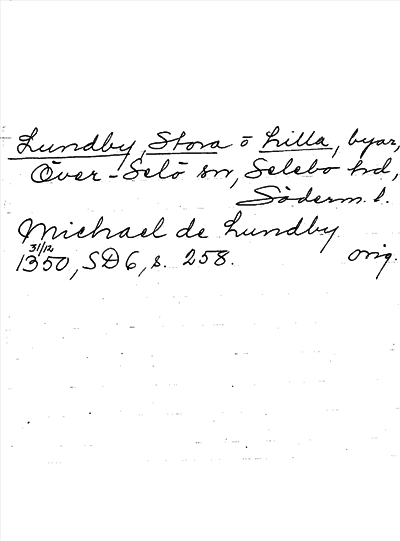 Lundby, Stora o Lilla, byar,
Över-Selö sn, Selebo hd,
Söderm. l.
Michael de Lundby
31/12
1350, SD 6, s. 258. orig.